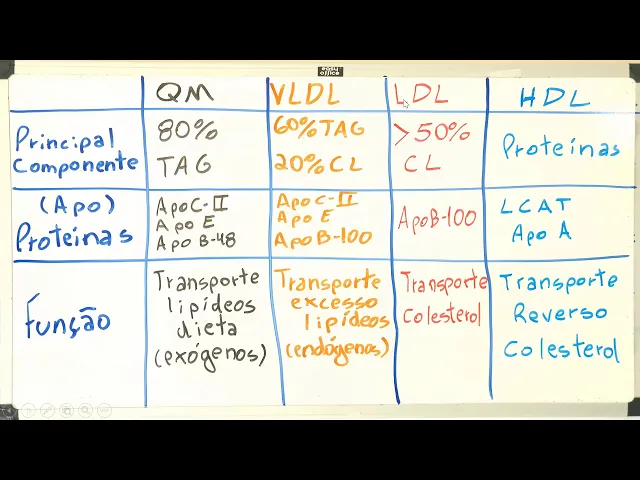 easy office
QM VLDL LDL HDL
Principal Componente 80% TAG 60% TAG 20% CL >50% CL Proteínas
(Apo) Proteínas ApoC-II Apo E Apo B-48 ApoC-II Apo E ApoB-100 ApoB-100 LCAT Apo A
Função Transporte lipídeos dieta (exógenos) Transporte excesso lipídeos (endógenos) Transporte Colesterol Transporte Reverso Colesterol